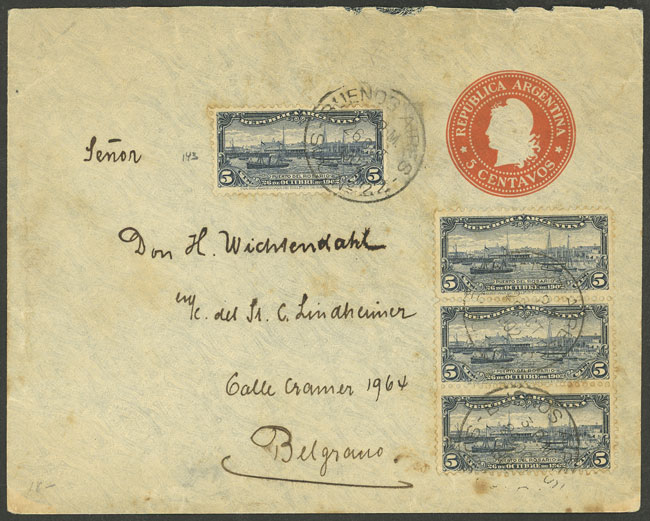 REPUBLICA ARGENTINA
5 CENTAVOS
BUENOS AIRES
REPUBLICA ARGENTINA
5 5
PUERTO DEL ROSARIO
26 DE OCTUBRE DE 1902
Señor
143
Don H. Wichsendahl
del Sr. C. Lindheimer
Calle Cramer 1964
Belgrano.
REPUBLICA ARGENTINA
5 5
PUERTO DEL ROSARIO
26 DE OCTUBRE DE 1902
REPUBLICA ARGENTINA
5 5
PUERTO DEL ROSARIO
26 DE OCTUBRE DE 1902
REPUBLICA ARGENTINA
5 5
PUERTO DEL ROSARIO
26 DE OCTUBRE DE 1902
18.-